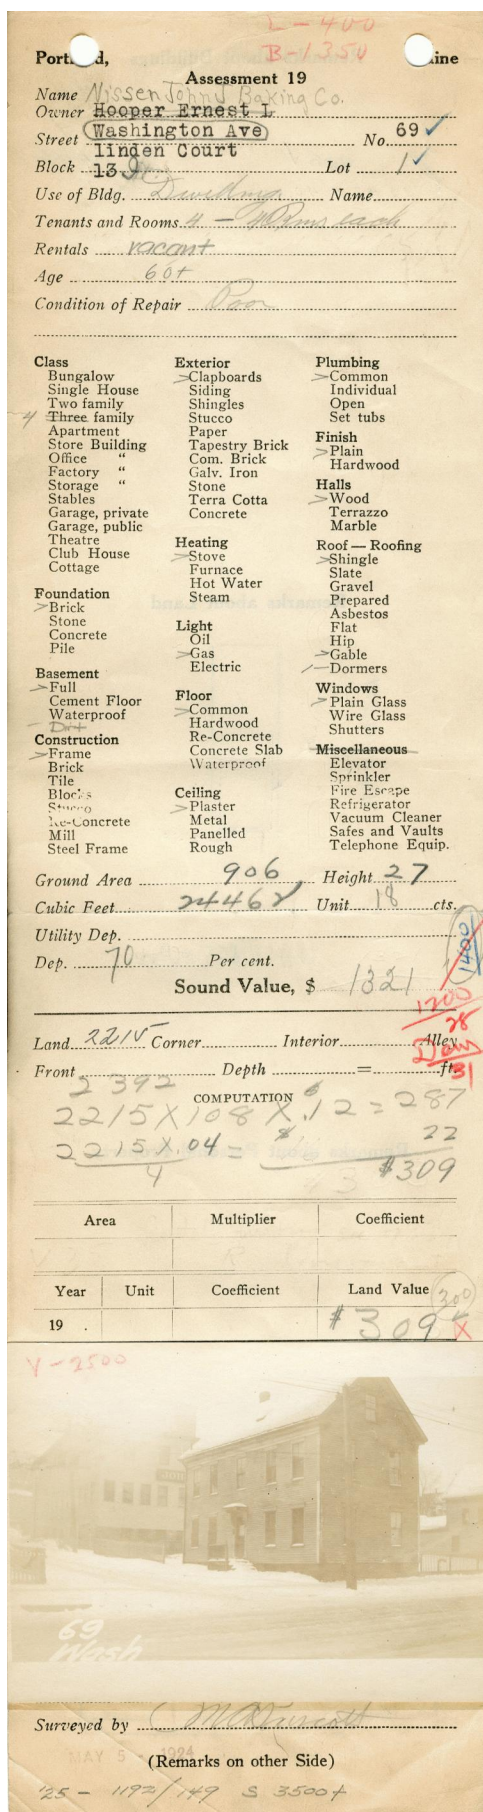 L-400
B-1350
Portland, Maine
Assessment 19
Name Nissen John J Baking Co.
Owner Hooper Ernest L
Street Washington Ave No. 69 ✓
linden Court
Block 13 Lot 1 ✓
Use of Bldg. Dwelling Name
Tenants and Rooms 4 — 4 Rms each
Rentals vacant
Age 60+
Condition of Repair Poor
Class
Bungalow
Single House
Two family
4 Three family
Apartment
Store Building
Office "
Factory "
Storage "
Stables
Garage, private
Garage, public
Theatre
Club House
Cottage
Foundation
> Brick
Stone
Concrete
Pile
Basement
> Full
Cement Floor
Waterproof
- Dirt
Construction
> Frame
Brick
Tile
Blocks
Stucco
Re-Concrete
Mill
Steel Frame
Exterior
> Clapboards
Siding
Shingles
Stucco
Paper
Tapestry Brick
Com. Brick
Galv. Iron
Stone
Terra Cotta
Concrete
Heating
> Stove
Furnace
Hot Water
Steam
Light
Oil
> Gas
Electric
Floor
> Common
Hardwood
Re-Concrete
Concrete Slab
Waterproof
Ceiling
> Plaster
Metal
Panelled
Rough
Plumbing
> Common
Individual
Open
Set tubs
Finish
> Plain
Hardwood
Halls
> Wood
Terrazzo
Marble
Roof — Roofing
> Shingle
Slate
Gravel
Prepared
Asbestos
Flat
Hip
> Gable
1 — Dormers
Windows
> Plain Glass
Wire Glass
Shutters
Miscellaneous
Elevator
Sprinkler
Fire Escape
Refrigerator
Vacuum Cleaner
Safes and Vaults
Telephone Equip.
Ground Area 906 Height 27
Cubic Feet 24462 Unit 18 cts.
Utility Dep.
1400
Dep. 70 Per cent.
Sound Value, $ 1321
1200
28
Land 2215 Corner Interior Alley
Down
31
Front Depth = ft.
2392
COMPUTATION
2215 X 108 X .12 = 287
2215 X .04 = 22
4 $309
Area Multiplier Coefficient
Year Unit Coefficient Land Value 300
19 . $309 X
V-2500
69
Wash
Surveyed by
MAY 5 - 1924
(Remarks on other Side)
'25 - 1192/149 S 3500+